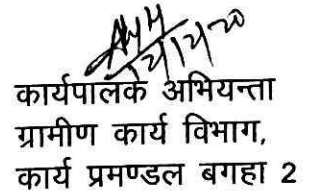 कार्यपालक अभियन्ता
ग्रामीण कार्य विभाग,
कार्य प्रमण्डल बगहा 2